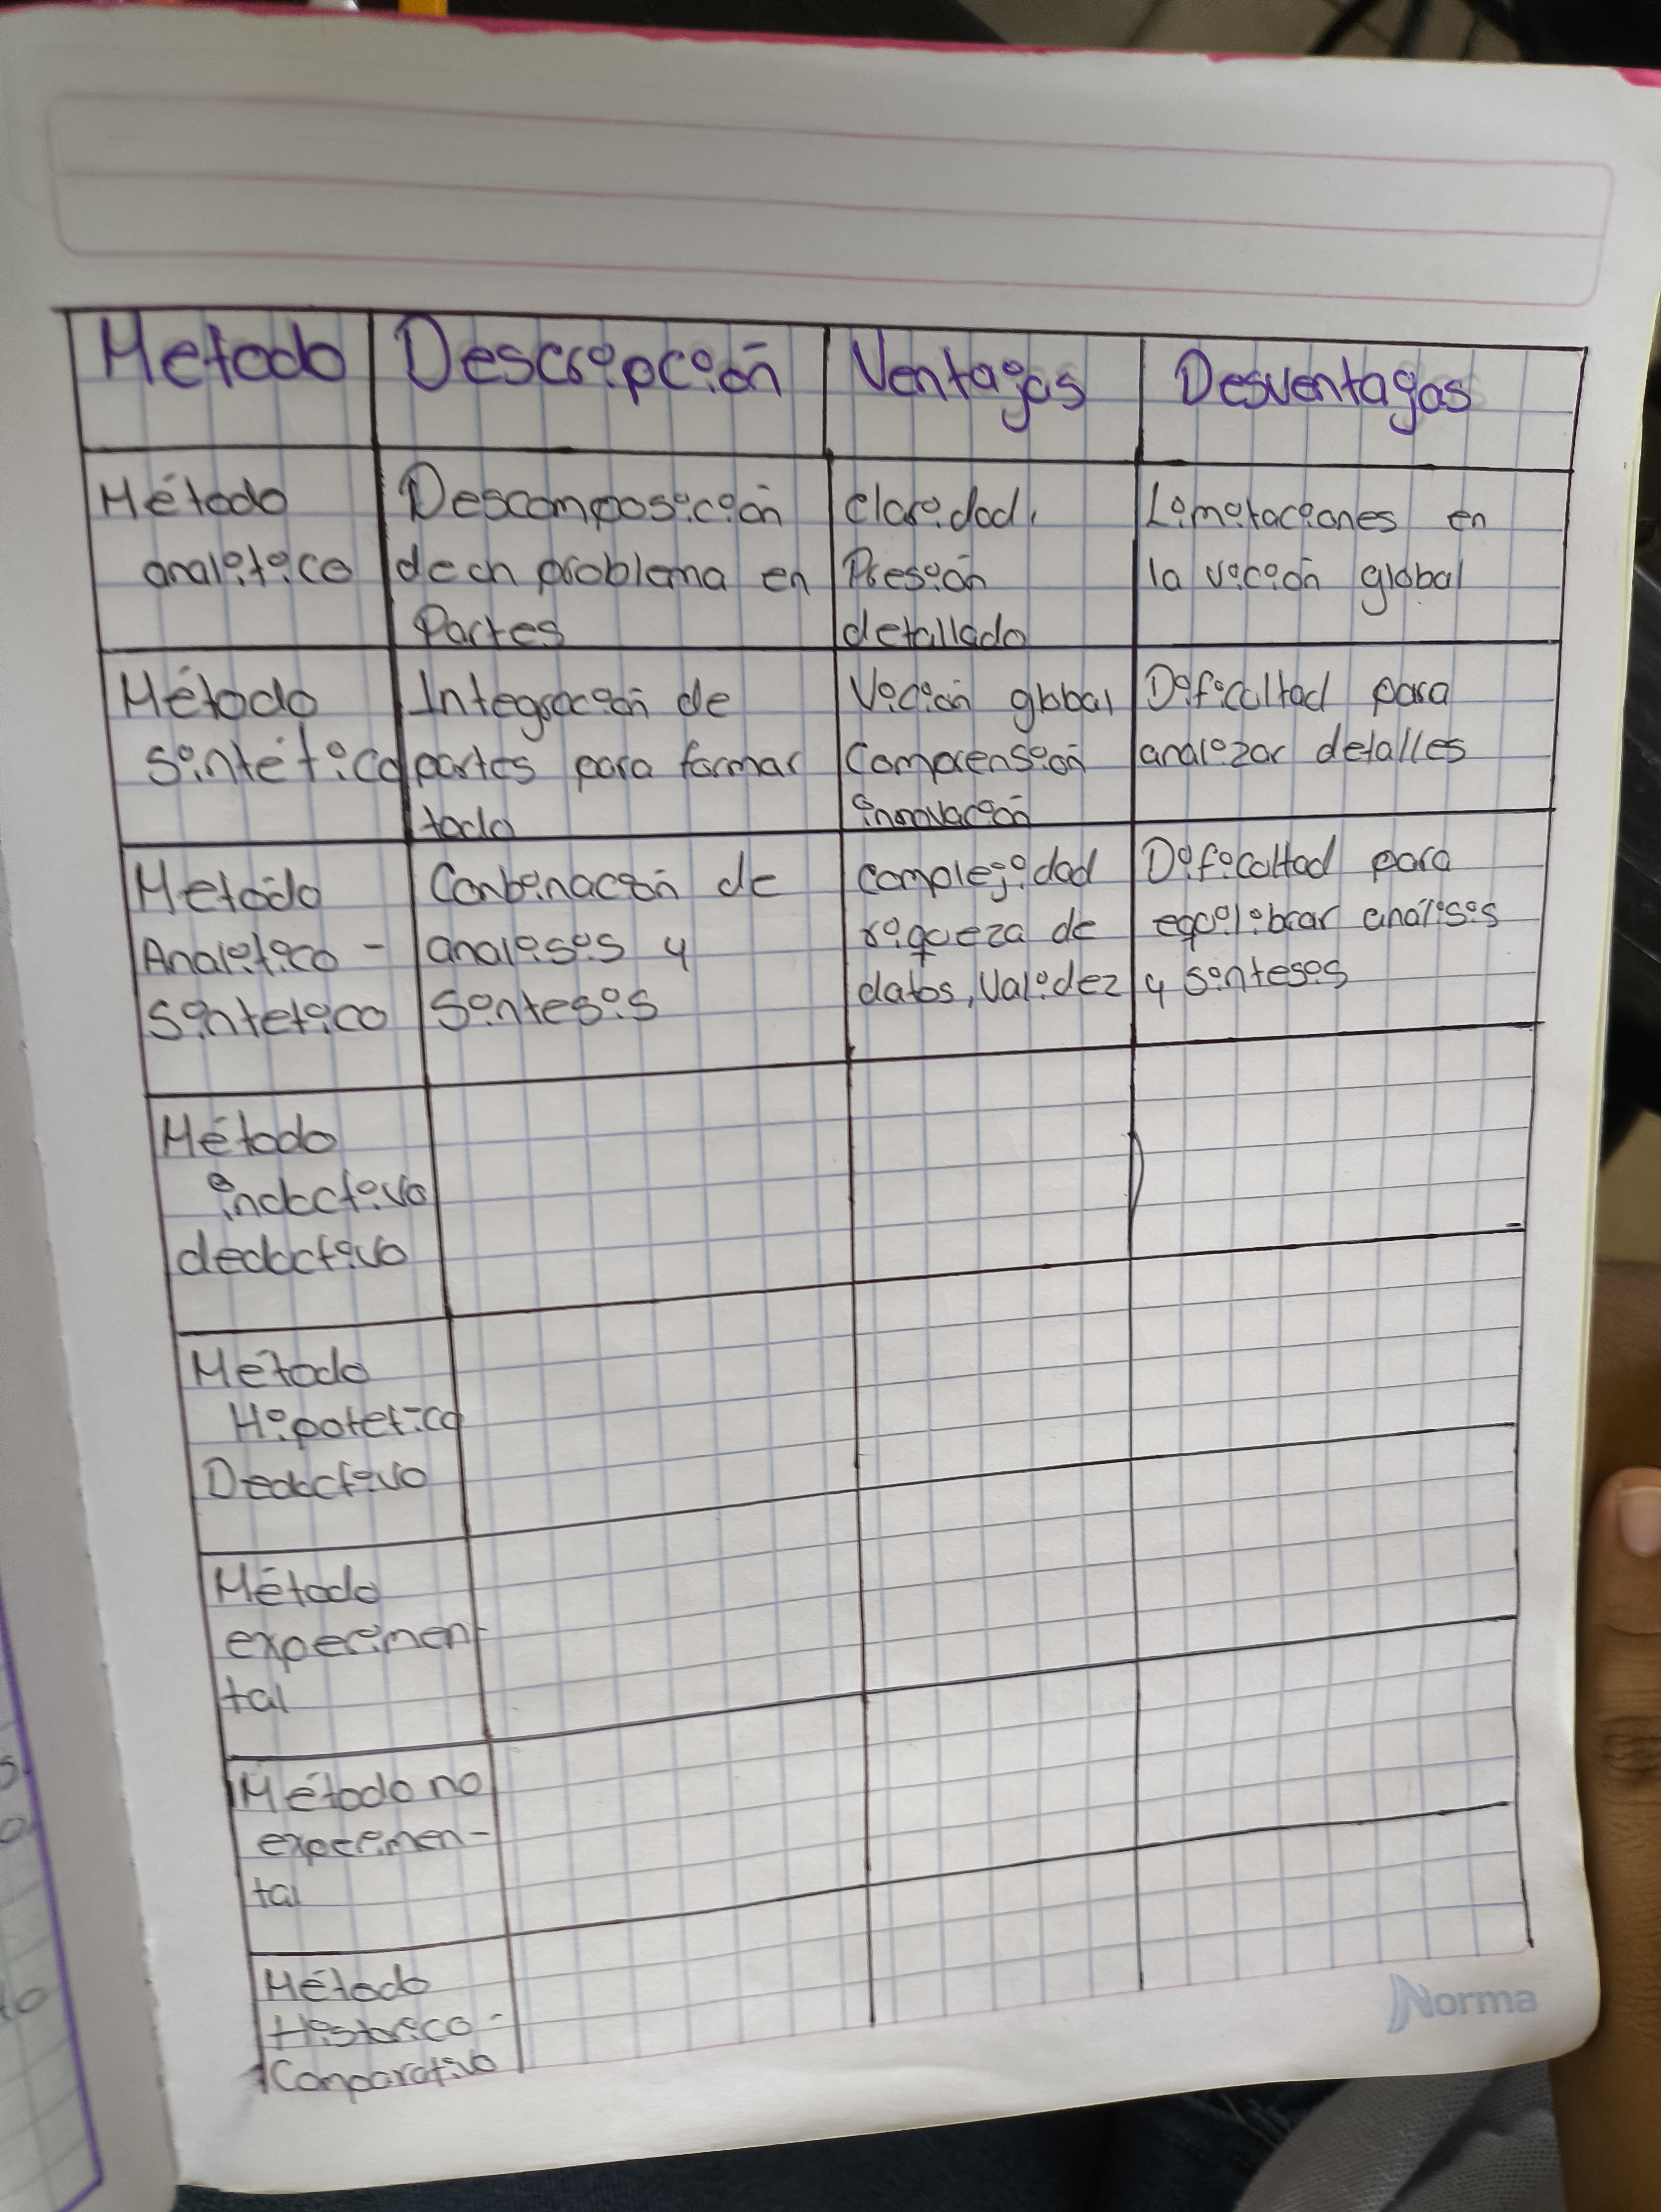 Metodo Descripción Ventajas Desventagas
Método
analitico
Descomposición
de un problema en
Partes
Claridad,
Presión
detallado
Limitaciones en
la vición global
Método
sintético
Integración de
partes para formar
todo
Vición global
Comprensión
innovación
Dificultad para
analizar detalles
Metodo
Analitico -
Sintetico
Conbinación de
analisis y
Sintesis
complejidad
riqueza de
datos, Validez
Dificultad para
equilibrar análisis
y sintesis
Método
inductivo
deductivo
Metodo
Hipotetico
Deductivo
Método
experimen
tal
Método no
experimen-
tal
Método
Historico -
Comparativo
Norma